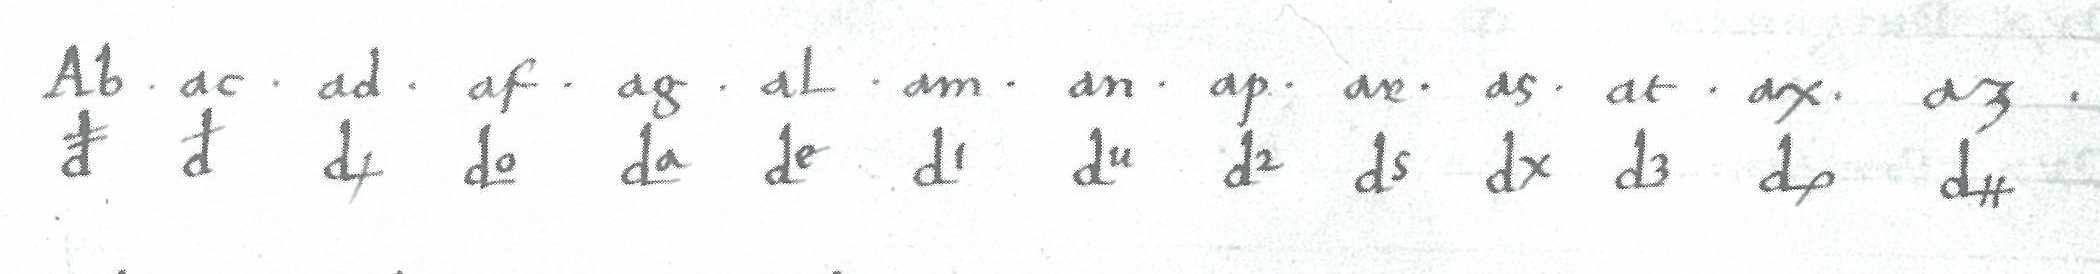 Ab . ac . ad . af . ag . al . am . an . ap . ar . as . at . ax . az .
d đ d⁄ do da de d1 du d2 ds dx d3 dρ d#